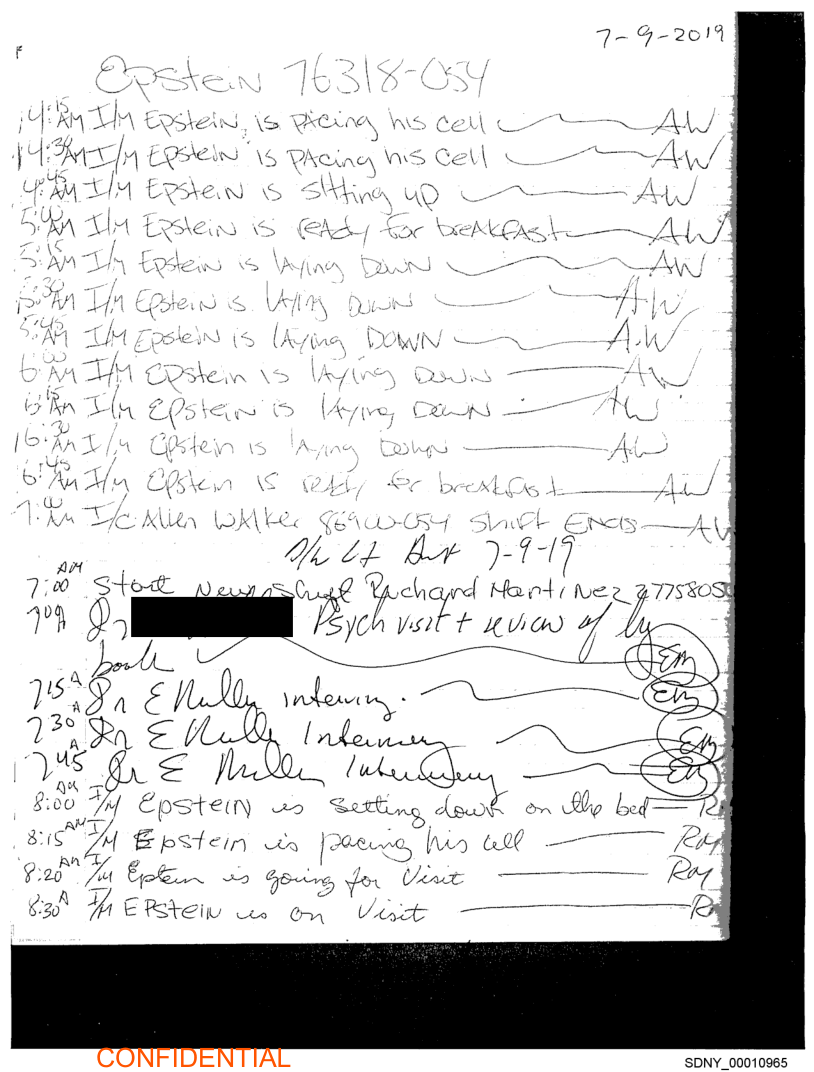 7-9-2019
Epstein 76318-054
4:15 AM I/M Epstein is pacing his cell AW
4:30 AM I/M Epstein is pacing his cell AW
4:45 AM I/M Epstein is sitting up AW
5:00 AM I/M Epstein is ready for breakfast AW
5:15 AM I/M Epstein is laying down AW
5:30 AM I/M Epstein is laying down AW
5:45 AM I/M Epstein is laying DOWN A.W
6:00 AM I/M Epstein is laying down AW
6:15 AM I/M Epstein is laying down AW
6:30 AM I/M Epstein is laying down AW
6:45 AM I/M Epstein is ready for breakfast AW
7:00 AM I/C Allen Walker 86900-054 shift Ends AW
7-9-19
7:00 AM Start New Shift Richard Martinez
709 A Dr Psych visit + review of log
book EM
715 A Dr E interview. EM
730 A Dr E Interview EM
745 A Dr E Interview EM
8:00 AM I/M EpstEIN is setting down on the bed
8:15 AM I/M Epstein is pacing his cell Ray
8:20 AM I/M Eptein is going for Visit Ray
8:30 A I/M EPStEIN is on Visit
CONFIDENTIAL
SDNY_00010965